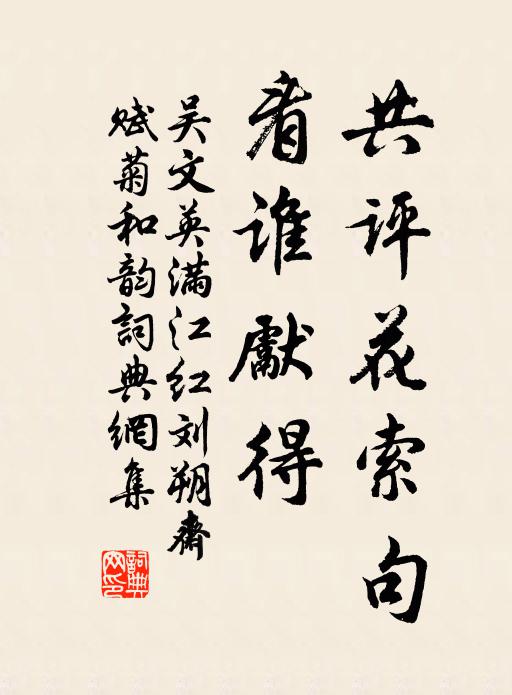 共评花索句
看谁獻得
吴文英满江红刘朔齋
赋菊和韵詞典網集
詞典网印